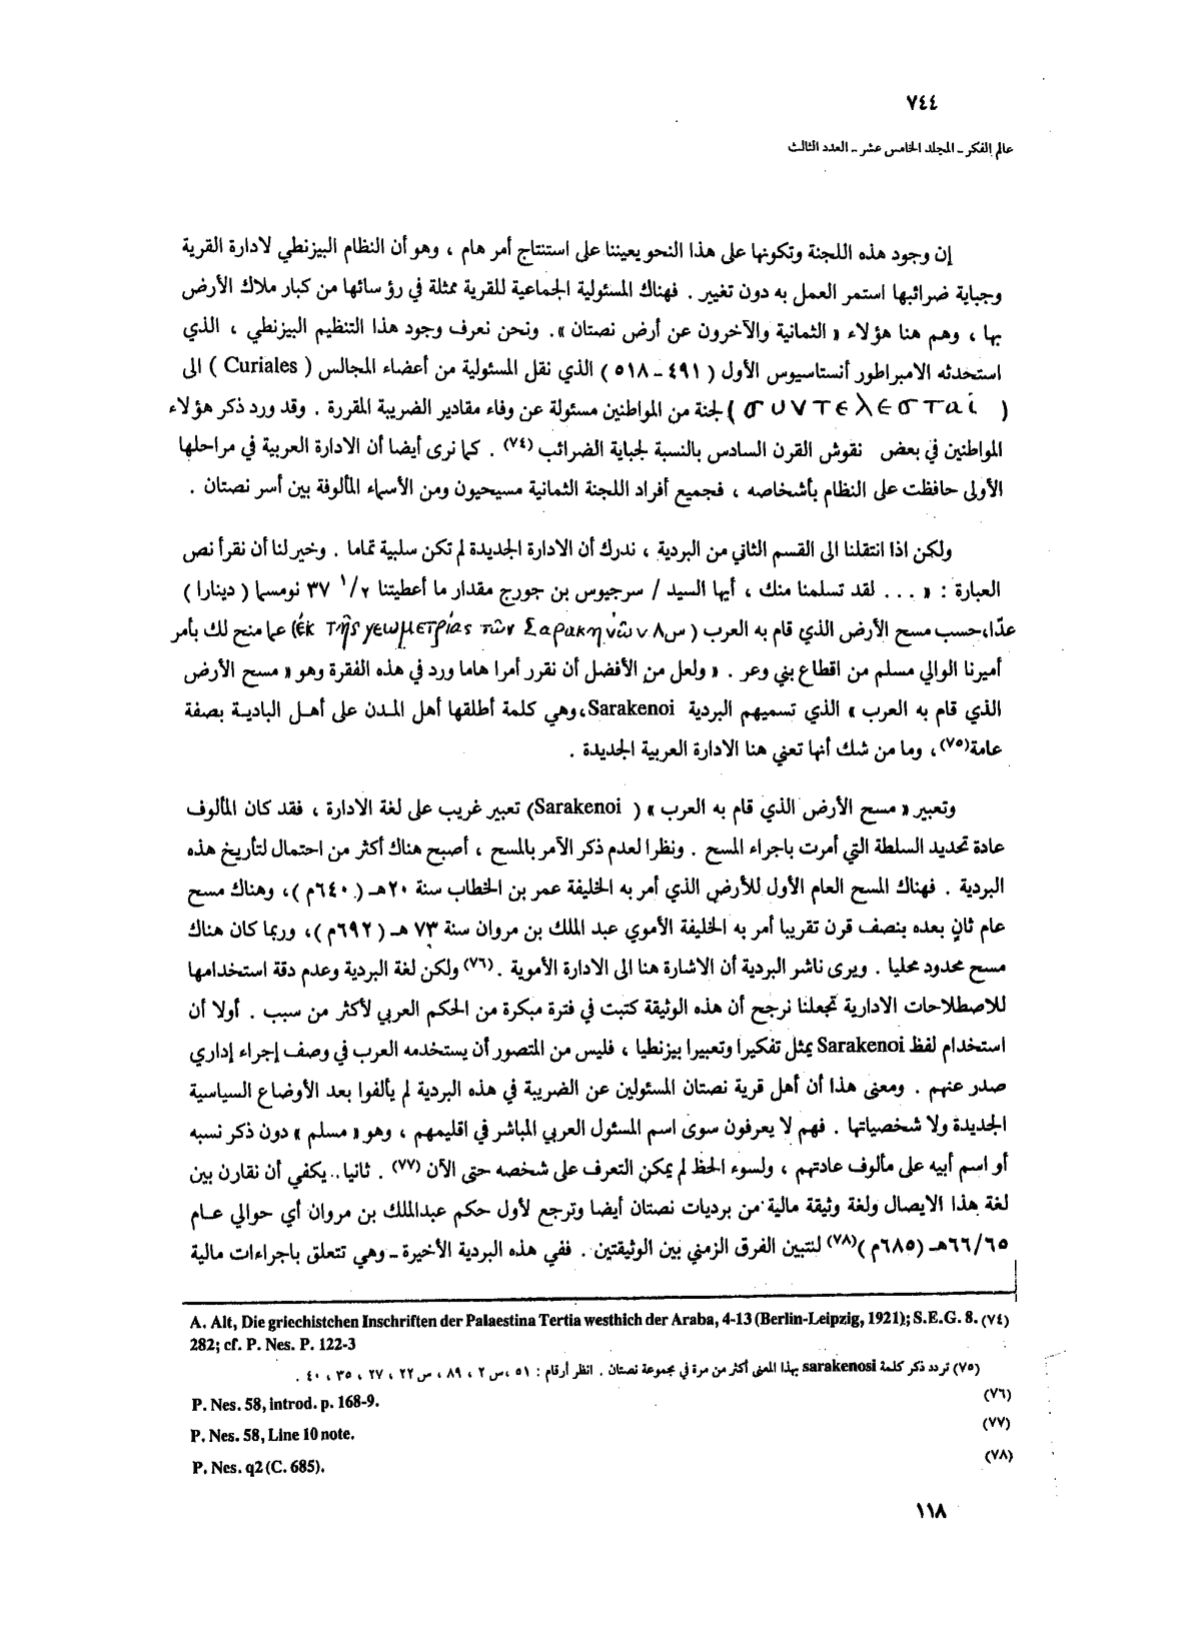 ٧٤٤
عالم الفكر ـ المجلد الخامس عشر ـ العدد الثالث
إن وجود هذه اللجنة وتكونها على هذا النحو يعيننا على استنتاج أمر هام ، وهو أن النظام البيزنطي لادارة القرية
وجباية ضرائبها استمر العمل به دون تغيير . فهناك المسئولية الجماعية للقرية ممثلة في رؤ سائها من كبار ملاك الأرض
بها ، وهم هنا هؤلاء « الثمانية والآخرون عن أرض نصتان ». ونحن نعرف وجود هذا التنظيم البيزنطي ، الذي
استحدثه الامبراطور أنستاسيوس الأول ( ٤٩١ ـ ٥١٨ ) الذي نقل المسئولية من أعضاء المجالس ( Curiales ) الى
( συντελεσταί ) لجنة من المواطنين مسئولة عن وفاء مقادير الضريبة المقررة . وقد ورد ذكر هؤلاء
المواطنين في بعض نقوش القرن السادس بالنسبة لجباية الضرائب (٧٤) . كما نرى أيضا أن الادارة العربية في مراحلها
الأولى حافظت على النظام بأشخاصه ، فجميع أفراد اللجنة الثمانية مسيحيون ومن الأسماء المألوفة بين أسر نصتان .
ولكن اذا انتقلنا الى القسم الثاني من البردية ، ندرك أن الادارة الجديدة لم تكن سلبية تماما . وخير لنا أن نقرأ نص
العبارة : « ... لقد تسلمنا منك ، أيها السيد / سرجيوس بن جورج مقدار ما أعطيتنا ١/٢ ٣٧ نومسما ( دينارا )
عدّا،حسب مسح الأرض الذي قام به العرب ( س٨ ἐκ τῆς γεωμετρίας τῶν Σαρακηνῶν) عما منح لك بأمر
أميرنا الوالي مسلم من اقطاع بني وعر . « ولعل من الأفضل أن نقرر أمرا هاما ورد في هذه الفقرة وهو « مسح الأرض
الذي قام به العرب » الذي تسميهم البردية Sarakenoi،وهي كلمة أطلقها أهل المدن على أهل البادية بصفة
عامة(٧٥)، وما من شك أنها تعني هنا الادارة العربية الجديدة .
وتعبير « مسح الأرض الذي قام به العرب » ( Sarakenoi) تعبير غريب على لغة الادارة ، فقد كان المألوف
عادة تحديد السلطة التي أمرت باجراء المسح . ونظرا لعدم ذكر الآمر بالمسح ، أصبح هناك أكثر من احتمال لتأريخ هذه
البردية . فهناك المسح العام الأول للأرض الذي أمر به الخليفة عمر بن الخطاب سنة ٢٠هـ ( ٦٤٠م )، وهناك مسح
عام ثانٍ بعده بنصف قرن تقريبا أمر به الخليفة الأموي عبد الملك بن مروان سنة ٧٣ هـ ( ٦٩٢م )، وربما كان هناك
مسح محدود محليا . ويرى ناشر البردية أن الاشارة هنا الى الادارة الأموية .(٧٦) ولكن لغة البردية وعدم دقة استخدامها
للاصطلاحات الادارية تجعلنا نرجح أن هذه الوثيقة كتبت في فترة مبكرة من الحكم العربي لأكثر من سبب . أولا أن
استخدام لفظ Sarakenoi يمثل تفكيرا وتعبيرا بيزنطيا ، فليس من المتصور أن يستخدمه العرب في وصف إجراء إداري
صدر عنهم . ومعنى هذا أن أهل قرية نصتان المسئولين عن الضريبة في هذه البردية لم يألفوا بعد الأوضاع السياسية
الجديدة ولا شخصياتها . فهم لا يعرفون سوى اسم المسئول العربي المباشر في اقليمهم ، وهو « مسلم » دون ذكر نسبه
أو اسم أبيه على مألوف عادتهم ، ولسوء الحظ لم يمكن التعرف على شخصه حتى الآن (٧٧) . ثانيا.. يكفي أن نقارن بين
لغة هذا الايصال ولغة وثيقة مالية من برديات نصتان أيضا وترجع لأول حكم عبدالملك بن مروان أي حوالي عام
٦٦/٦٥هـ (٦٨٥م )(٧٨) لنتبين الفرق الزمني بين الوثيقتين . ففي هذه البردية الأخيرة ـ وهي تتعلق باجراءات مالية
A. Alt, Die griechistchen Inschriften der Palaestina Tertia westhich der Araba, 4-13 (Berlin-Leipzig, 1921); S.E.G. 8. (٧٤)
282; cf. P. Nes. P. 122-3
(٧٥) تردد ذكر كلمة sarakenosi بهذا المعنى أكثر من مرة في مجموعة نصتان . انظر أرقام : ٥١ ،س ٢ ، ٨٩ ، س ٢٢ ، ٢٧ ، ٣٥ ، ٤٠ .
P. Nes. 58, introd. p. 168-9. (٧٦)
P. Nes. 58, Line 10 note. (٧٧)
P. Nes. q2 (C. 685). (٧٨)
١١٨